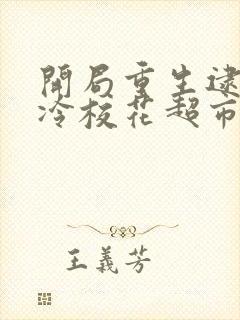 開局重生逮
冷校花超市
王義芳